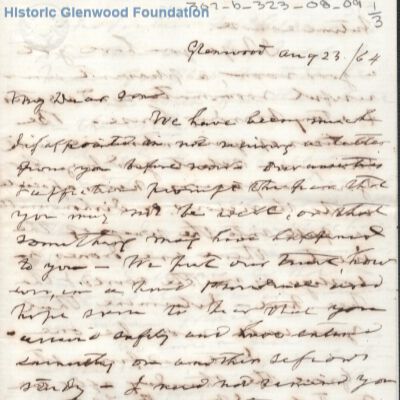 Historic Glenwood Foundation
302-b-323-08-09 1/3
Glenwood Aug 23/64
My Dear Sons
We have been much
disappointed in not receiving a letter
from you before now. Our anxieties
& affections prompt the fear that
you may not be well, or that
something may have happened
to you - We put our trust, how
ever, in a kind Providence and
hope soon to hear that you
arrived safely and have entered
earnestly on another session's
study - I need not remind you